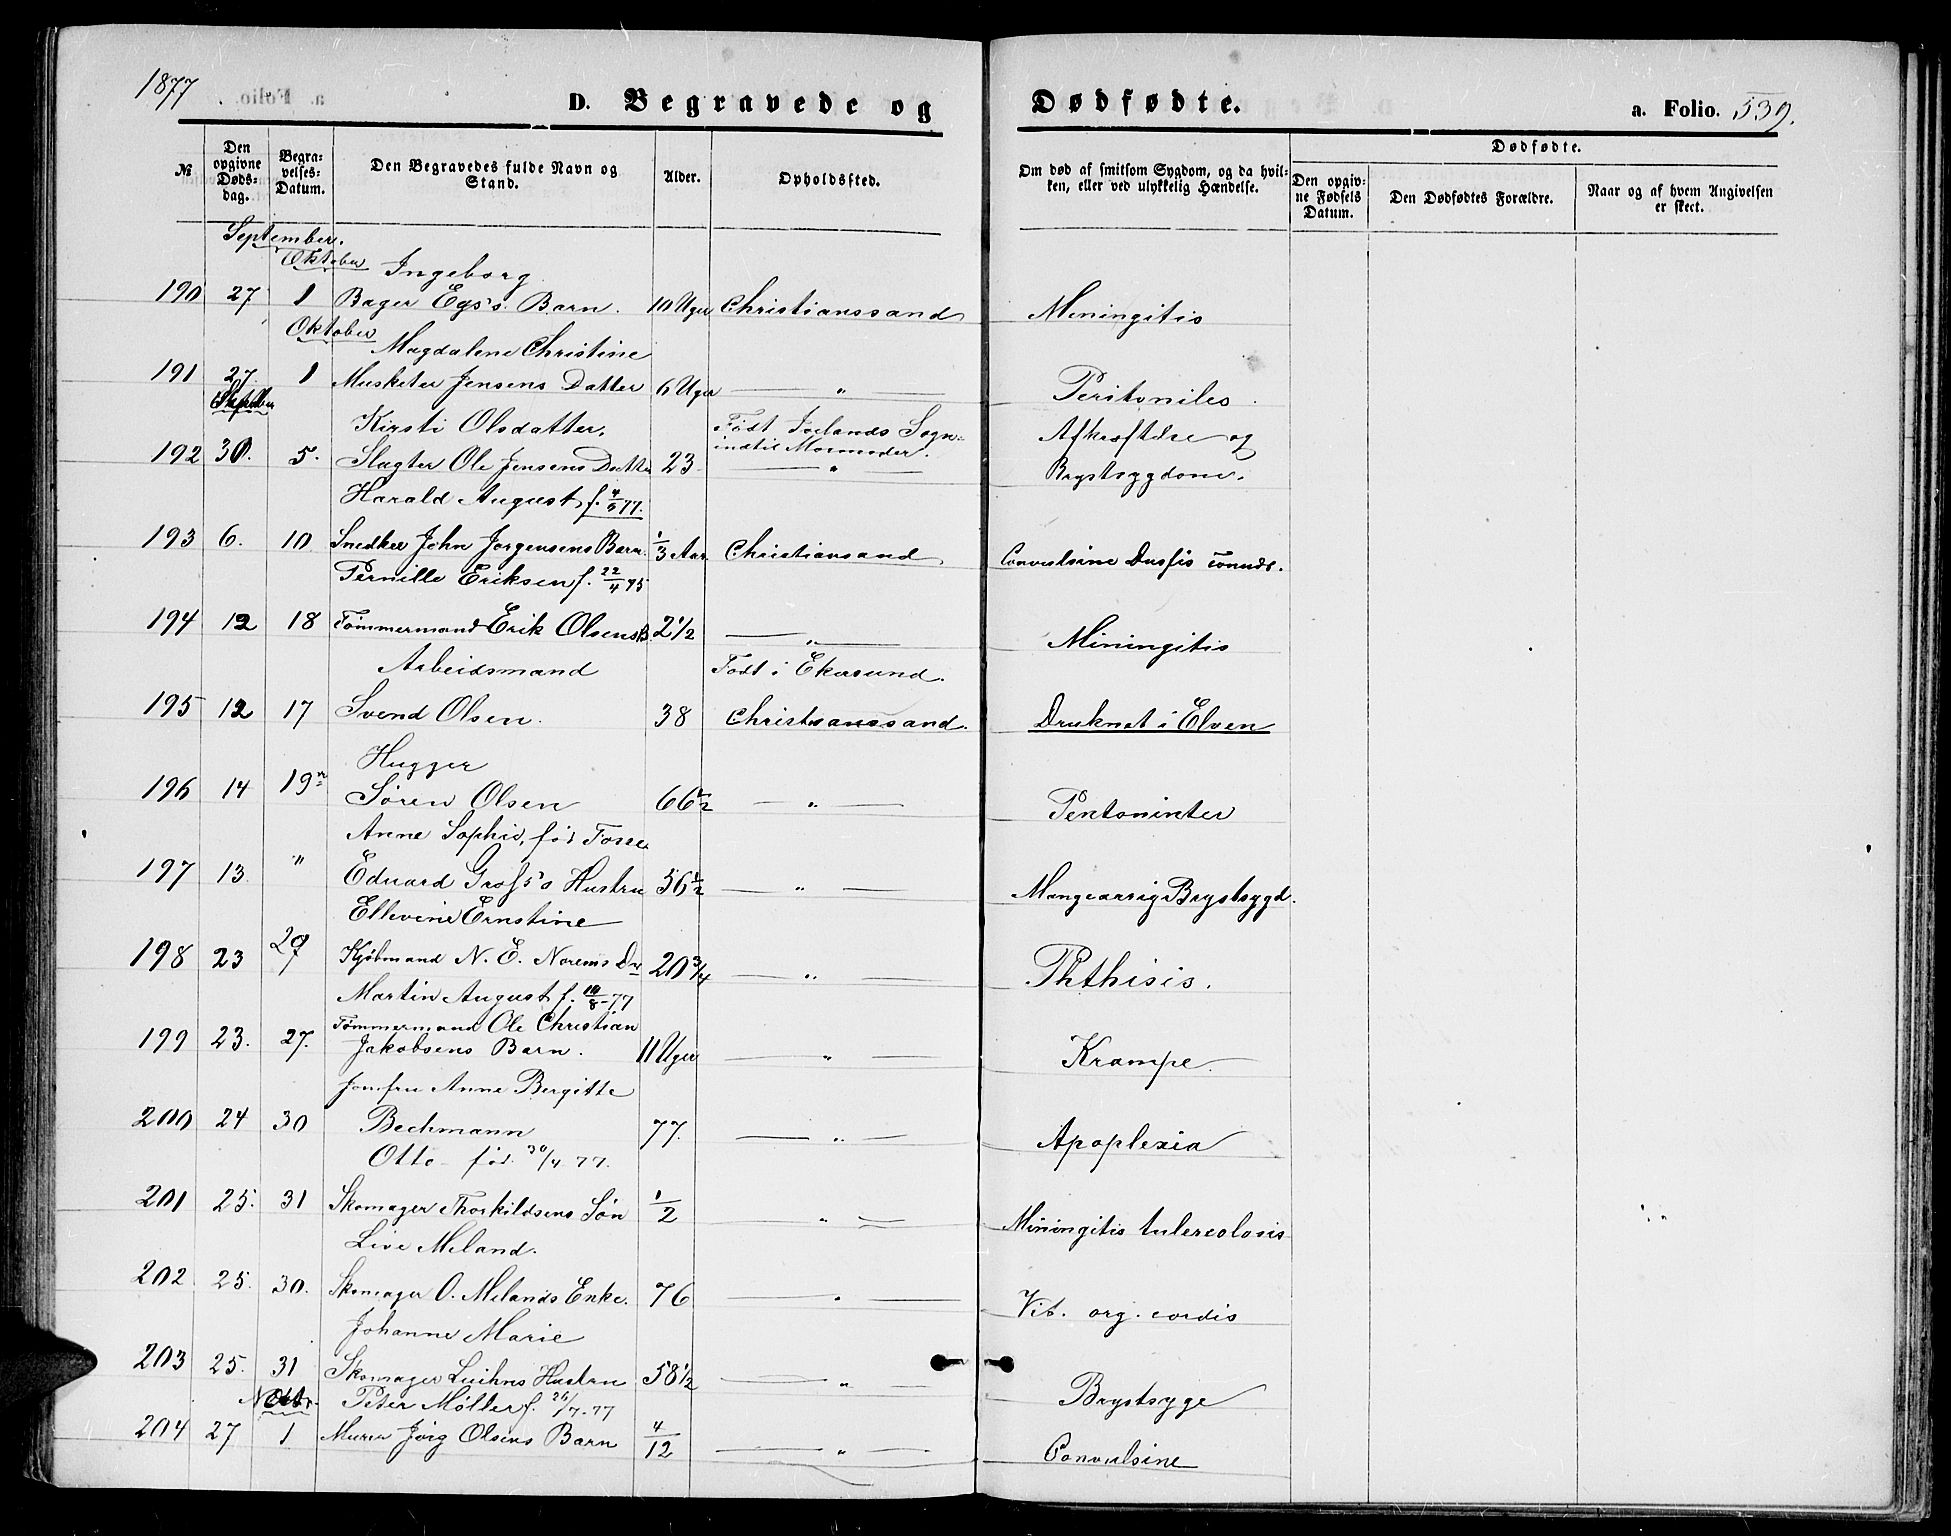 1877
D. Begravede og Dødfødte. a. Folio. 539.
№ Den opgivne Døds-dag. Begra-velses-Datum. Den Begravedes fulde Navn og Stand. Alder. Opholdssted. Om død af smitsom Sygdom, og da hvil-ken, eller ved ulykkelig Hændelse. Dødfødte.
Den opgiv-ne Fødsels Datum. Den Dødfødtes Forældre. Naar og af hvem Angivelsen er skeet.
September.
Oktober Ingeborg
190 27 1 Bager Egs's Barn. 10 Uger Christianssand Miningitis
Oktober Magdalene Christine
191 27 1 Musketer Jensens Datter 6 Uger — " — Peritoniles
Kirsti Olsdatter. Født Sogn
192 30. 5. Slagter Ole Jensens Datter 23 — " — Afkræftelse og Brystsygdom.
Harald August f. 4/5 77.
193 6. 10 Snedker John Jorgensens Barn. 1/3 Aar Christiansand Convulsine
Pernille Eriksen f. 22/4 75
194 12 18 Tømmermand Erik Olsens B. 2 1/2 — " — Miningitis
Arbeidsmand Født i Ekersund.
195 12 17 Svend Olsen. 38 Christianssand. Druknet i Elven
Hugger
196 14 19 Søren Olsen 66 1/2 — " — Pentoninter
Anne Sophie, fød Fosse
197 13. " Eduard Gross's Hustru 56 1/2 — " — Mangeaarig Brystsygd.
Ellevine Ernstine
198 23 29 Kjøbmand N. E. Norems Dr 20 3/4 — " — Phthisis.
Martin August f. 10/8-77
Tømmermand Ole Christian
199 23. 27. Jakobsens Barn. 11 Uger — " — Krampe.
Jomfru Anne Bergitte
200 24 30 Bechmann 77. — " — Apoplexia
Otto fød. 30/4 77.
201 25. 31 Skomager Thorkildsens Søn 1/2 — " — Miningitis tulercolosis
Live Meland.
202 25. 30. Skomager O. Melands Enke. 76 — " — Vit. org. cordis
Johanne Marie
203 25. 31 Skomager Hustru 58 1/2 — " — Brystsyge
Peter Møller f. 26/7-77
204 27 1 Murer Jørg Olsens Barn 4/12 — " — Convulsine